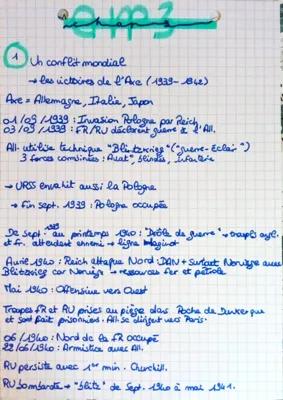 chap 3
① Un conflit mondial
→ les victoires de l'Axe (1939 - 1942)
Axe = Allemagne, Italie, Japon
01/09/1939 : Invasion Pologne par Reich
03/09/1939 : FR/RU déclarent guerre à l'All.
All. utilise technique "Blitzkrieg" ("guerre-éclair")
3 forces combinées : Aviat°, blindés, infanterie
→ URSS envahit aussi la Pologne
→ Fin sept. 1939 : Pologne occupée
De sept. 1939 au printemps 1940 : "Drôle de guerre" → troupes
et fr. attendent ennemi → ligne Maginot
Avril 1940 : Reich attaque Nord DAN + surtout Norvège avec
Blitzkrieg car Norvège → ressources fer et pétrole
Mai 1940 : Offensive vers Ouest
Troupes FR et RU prises au piège dans Poche de Dunkerque
et sont fait prisonniers. All. se dirigent vers Paris.
06/1940 : Nord de la FR occupé
22/06/1940 : Armistice avec All.
RU persiste avec 1er min. Churchill.
RU bombardé → "blitz" de Sept. 1940 à mai 1941.